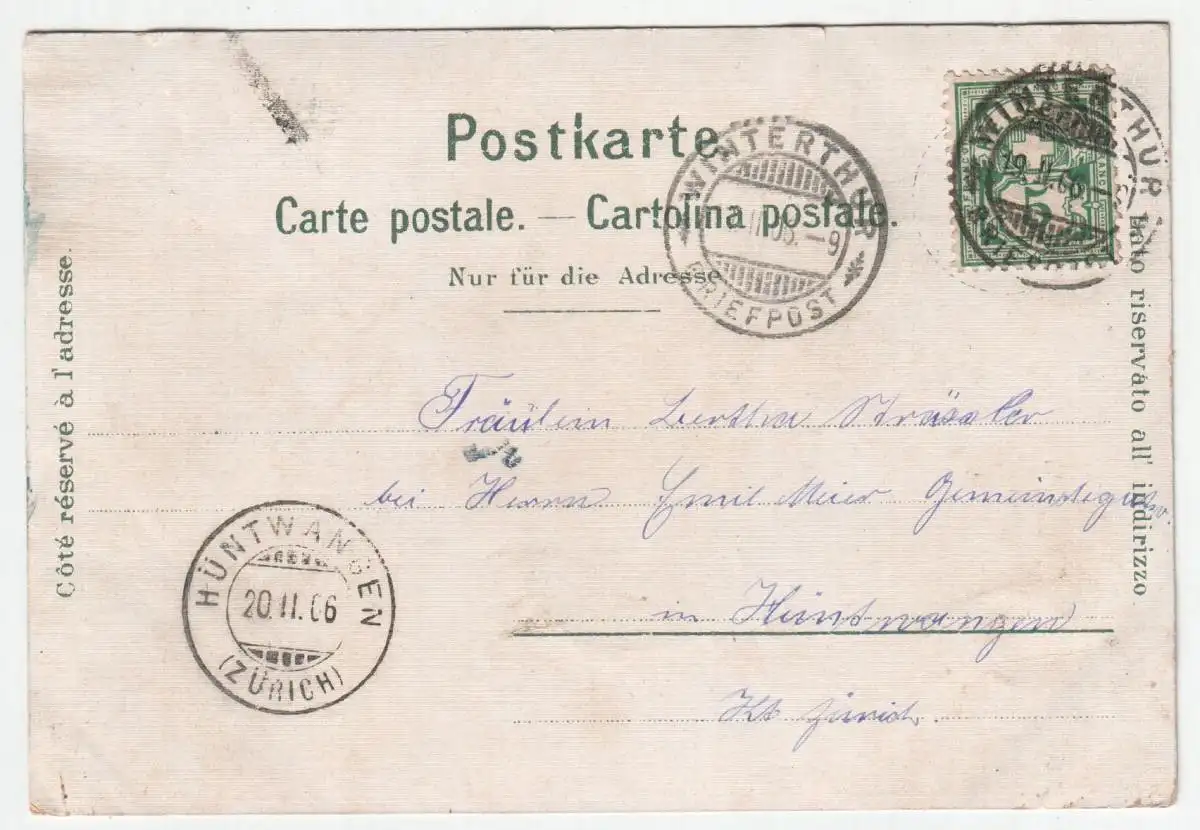 Postkarte
Carte postale. — Cartolina postale.
Nur für die Adresse
Côté réservé à l'adresse.
Lato riservato all' indirizzo
WINTERTHUR
II.06.–9
BRIEFPOST
WINTERTHUR
19.II.06
BRIEFPOST
Fräulein Bertha Strässler
bei Herrn Emil Meier Gemeindegutsv.
in Hüntwangen
Kt Zürich.
HÜNTWANGEN
20.II.06
(ZÜRICH)